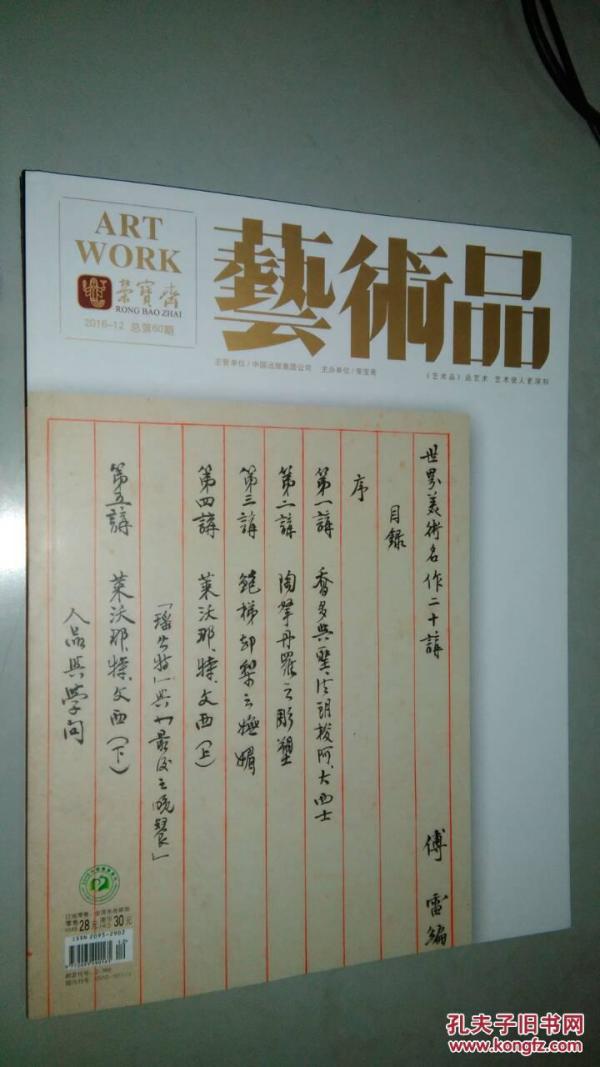 ART
WORK
榮寶齋
RONG BAO ZHAI
2016-12 总第60期
藝術品
主管单位/中国出版集团公司 主办单位/荣宝斋
《艺术品》品艺术 艺术使人更深刻
世界美術名作二十講
傅雷編
目錄
序
第一講 喬多與聖法朗梭阿大西士
第二講 陶拿丹羅之彫塑
第三講 鮑梯却梨之嫵媚
第四講 萊沃那特文西(上)
「瑤公特」與「最後之晚餐」
第五講 萊沃那特文西(下)
人品與學問
28元
30元
ISSN 2095-2902
孔夫子旧书网
www.kongfz.com